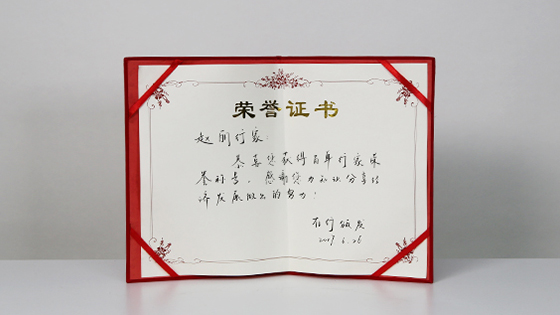 荣誉证书
赵丽行家:
恭喜您获得百单行家荣
誉称号,感谢您为认知分享经
济发展做出的努力!
在行
2017 6.26